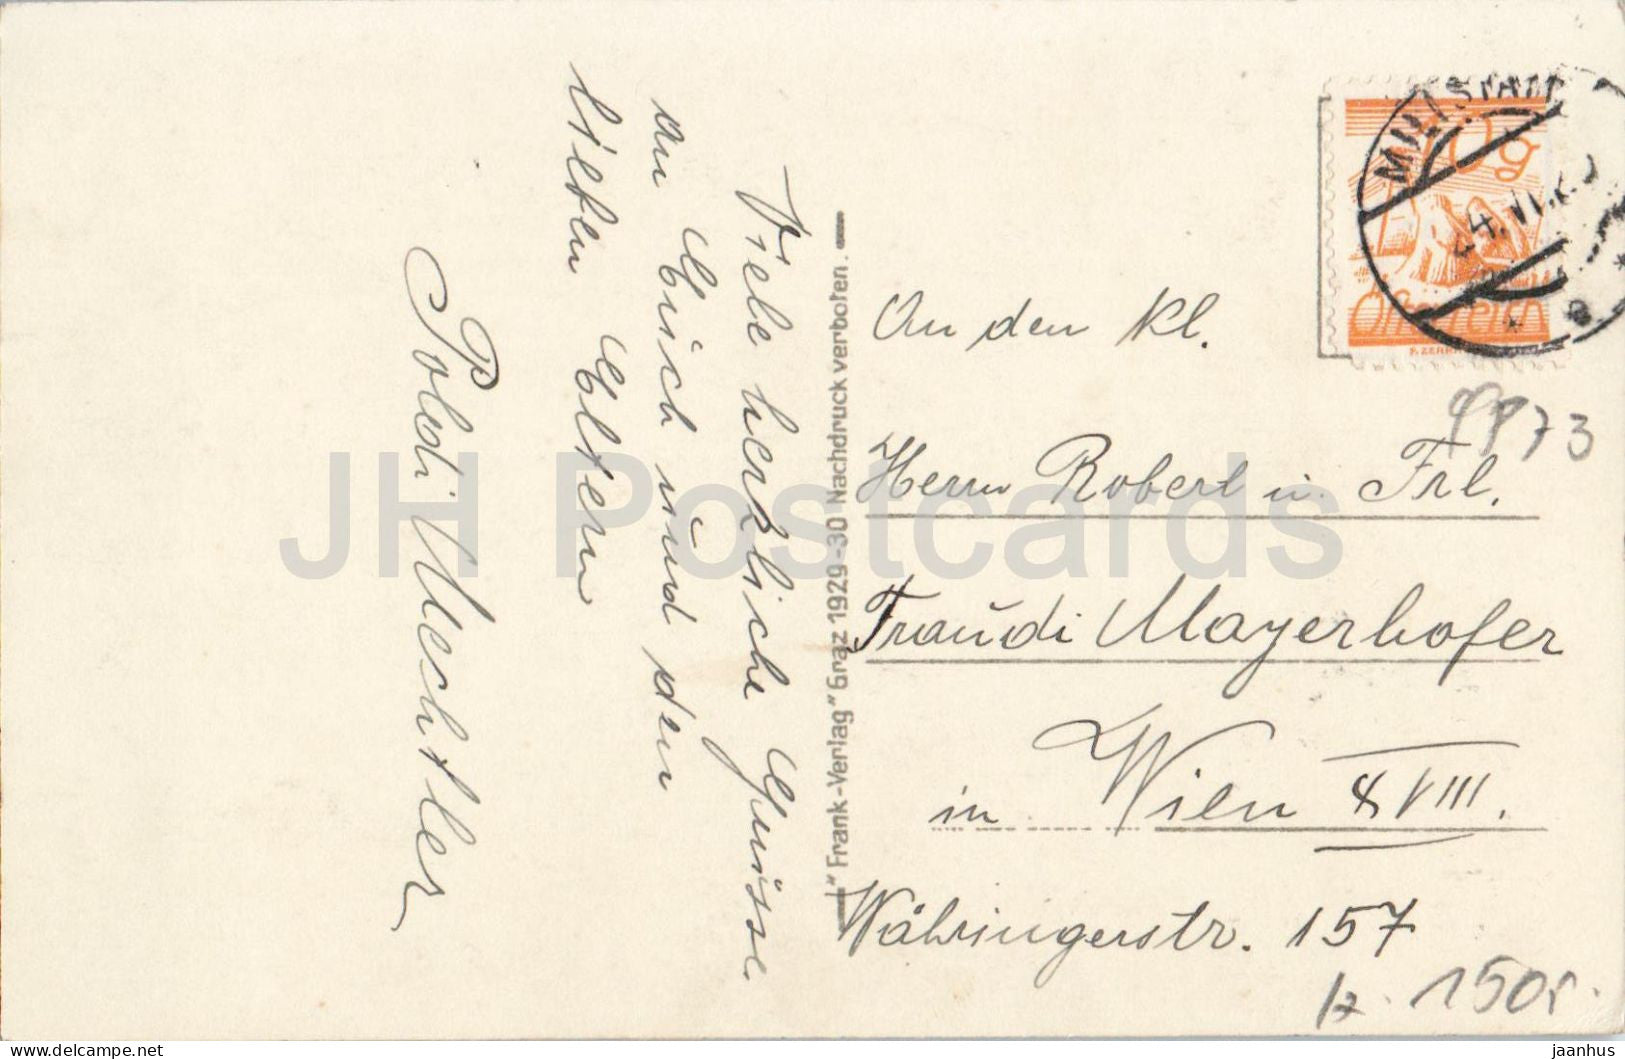 Viele herzliche Grüsse
an Euch und den
lieben Eltern
Poldi Mechtler
"Frank-Verlag" Graz 1929-30 Nachdruck verboten.
MILLSTATT
4. VI.
10g
Österreich
An den kl.
Herrn Robert u. Frl.
Traudi Mayerhofer
in Wien XVIII.
Währingerstr. 157
150
JH Postcards
delcampe.net
jaanhus